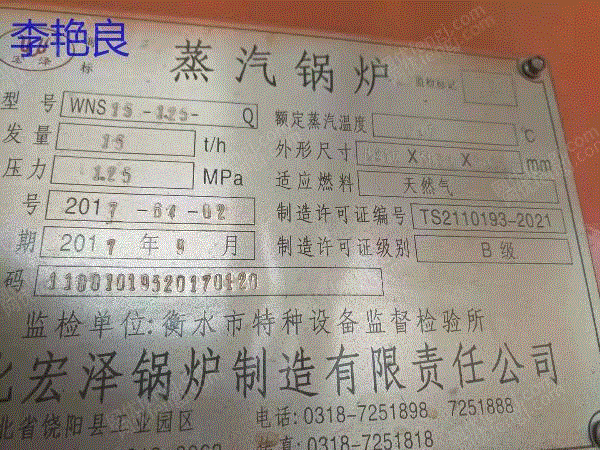 李艳良
蒸汽锅炉
监检标记
商标
宏泽
型号 WNS15-1.25-Q
额定蒸汽温度 ℃
发量 15 t/h
外形尺寸 X X mm
压力 1.25 MPa
适应燃料 天然气
号 2017-64-02
制造许可证编号 TS2110193-2021
期 2017年9月
制造许可证级别 B级
码 11001019520170120
监检单位:衡水市特种设备监督检验所
北宏泽锅炉制造有限责任公司
北省饶阳县工业园区
电话: 0318-7251898 7251888
传真: 0318-7251818